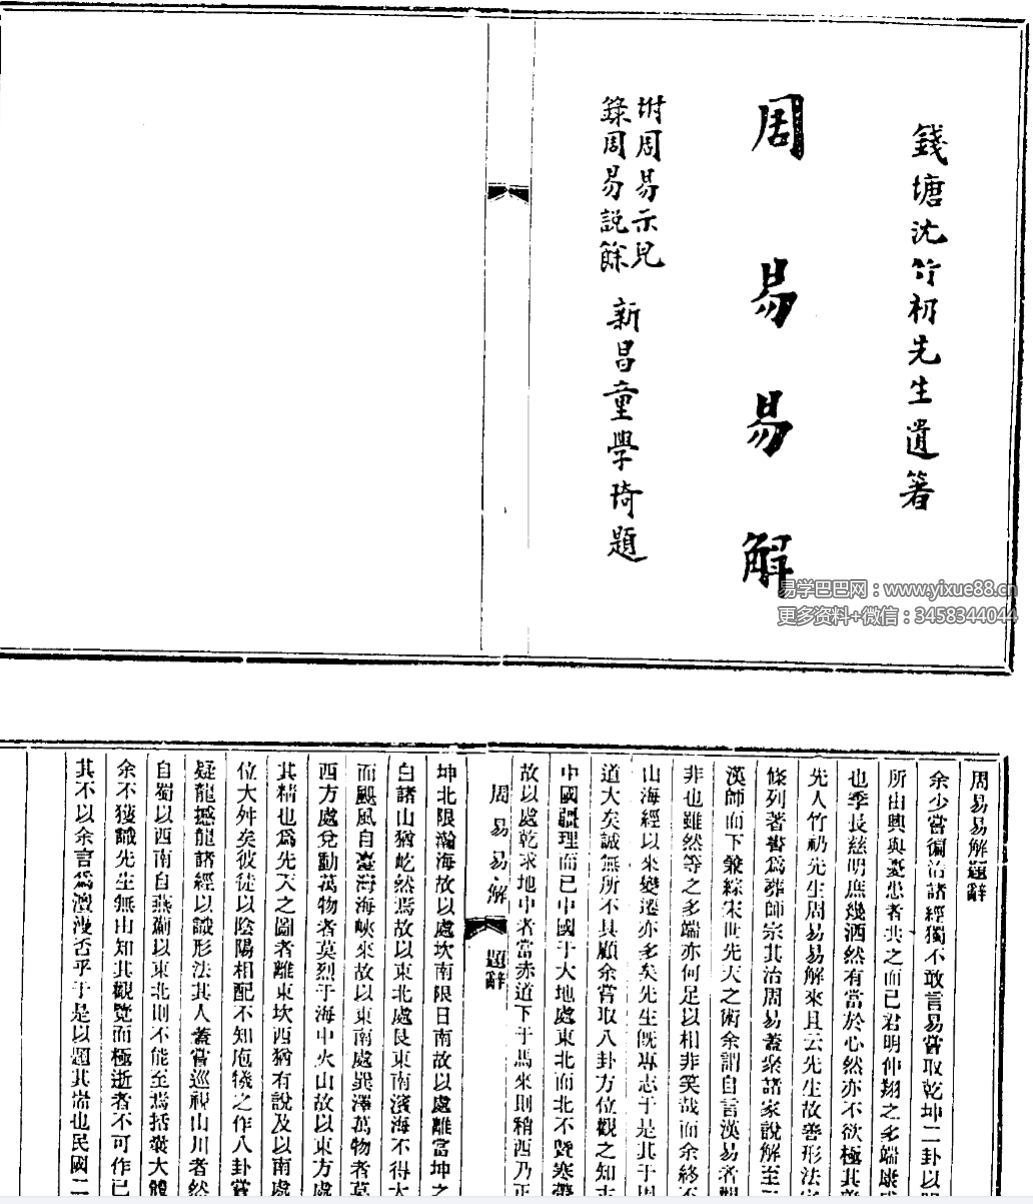 錢塘沈竹礽先生遺著
周易易解
坿周易示兒
錄周易說餘
新昌童學琦題
易学巴巴网：www.yixue88.cn
更多资料+微信：3458344044
周易易解題辭
余少嘗徧治諸經獨不敢言易嘗取乾坤二卦以明
所由興與憂患者共之而已君明仲翔之多端康成
也季長慈明庶幾洒然有當於心然亦不欲極其
先人竹礽先生周易易解來且云先生故善形法
條列著書爲葬師宗其治周易蓋衆諸家說解至
漢師而下兼綜宋世先天之術余謂自言漢易者
非也雖然等之多端亦何足以相非笑哉而余終不
山海經以來變遷亦多矣先生旣專志于是其于
道大矣誠無所不具顧余嘗取八卦方位觀之知古
中國疆理而已中國于大地處東北而北不暨寒帶
故以處乾求地中者當赤道下于馬來則稍西乃正
周易易解 題辭
坤北限瀚海故以處坎南限日南故以處離當坤之
白諸山猶屹然焉故以東北處艮東南濱海不得大
而颶風自臺海海峽來故以東南處巽澤萬物者莫
西方處兌動萬物者莫烈于海中火山故以東方處
其精也爲先天之圖者離東坎西猶有說及以南處
位大舛矣彼徒以陰陽相配不知庖犧之作八卦嘗
疑龍撼龍諸經以識形法其人蓋嘗巡視山川者然
自蜀以西南自燕薊以東北則不能至焉括囊大體
余不獲識先生無由知其觀覽而極逝者不可作已
其不以余言爲澶漫否乎于是以題其耑也民國二